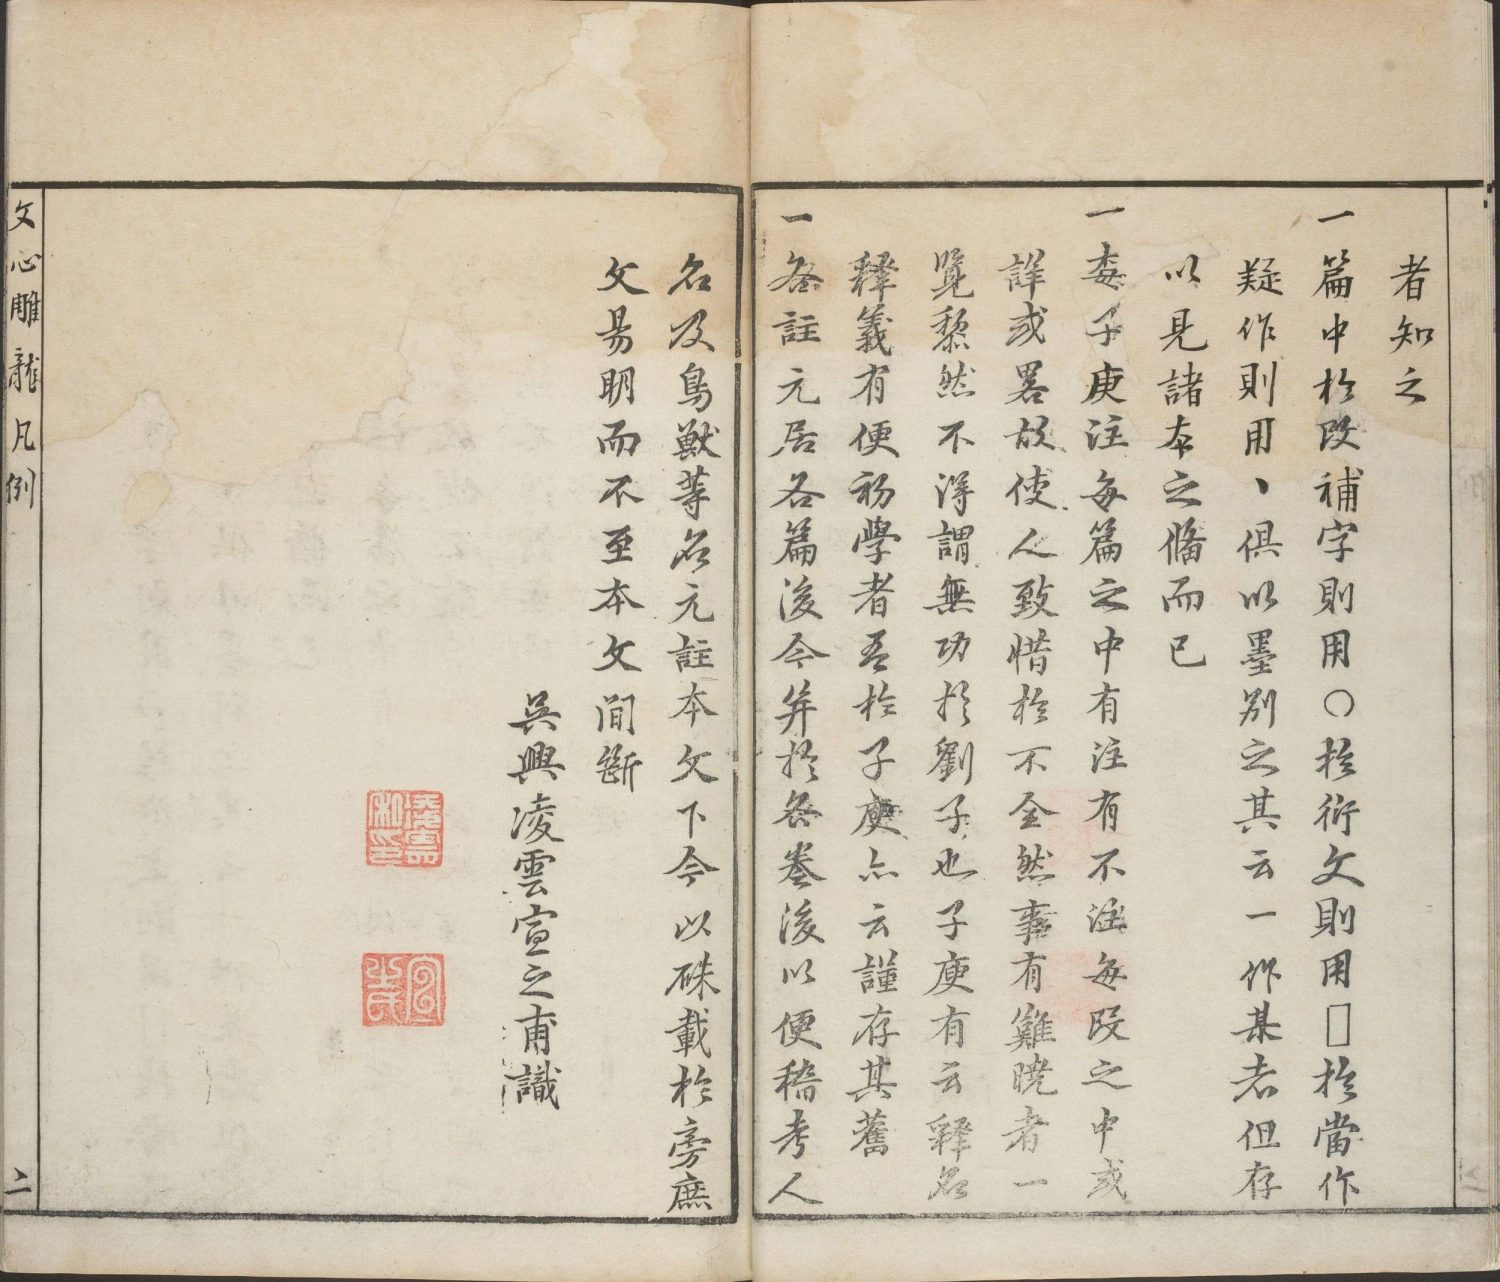 者知之
一篇中於改補字則用○於衍文則用□於當作
疑作則用、俱以墨別之其云一作某者但存
以見諸本之俻而已
一梅子庚注每篇之中有注有不注每段之中或
詳或畧故使人致惜於不全然事有難曉者一
覽黎然不得謂無功於劉子也子庚有云釋名
釋義有便初學者吾於子庚亦云謹存其舊
一各註元居各篇後今并於各卷後以便稽考人
名及鳥獸等名元註本文下今以硃載於旁庶
文易明而不至本文間斷
吳興凌雲宣之甫識
文心雕龍凡例
二